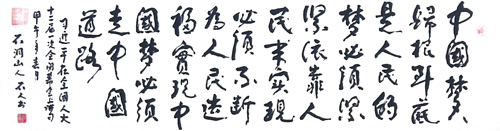 中国梦
归根到底
是人民的
梦必须紧
紧依靠人
民来实现
必须不断
为人民造
福实现中
国梦必须
走中国
道路
习近平在全国人大
十二届一次会议上讲话句
甲午年春月
石洞山人